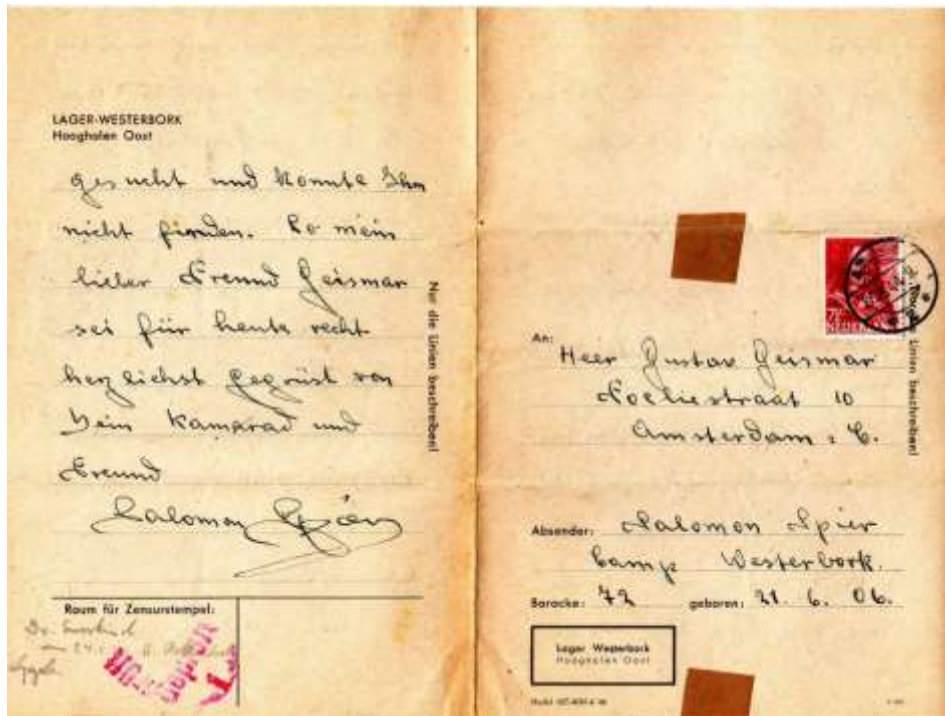 LAGER-WESTERBORK
Hooghalen Oost
gesucht und konnte Ihm
nicht finden. So mein
lieber Freund Geismar
sei für heute recht
herzlichst gegrüst von
Dein Kamarad und
Freund
Salomon Spier
Nur die Linien beschreiben!
Raum für Zensurstempel:
An: Heer Gustav Geismar
10
Amsterdam: C.
Linien beschreiben!
Absender: Salomon Spier
Camp Westerbork.
Baracke: 72 geboren: 21. 6. 06.
Lager Westerbork
Hooghalen Oost